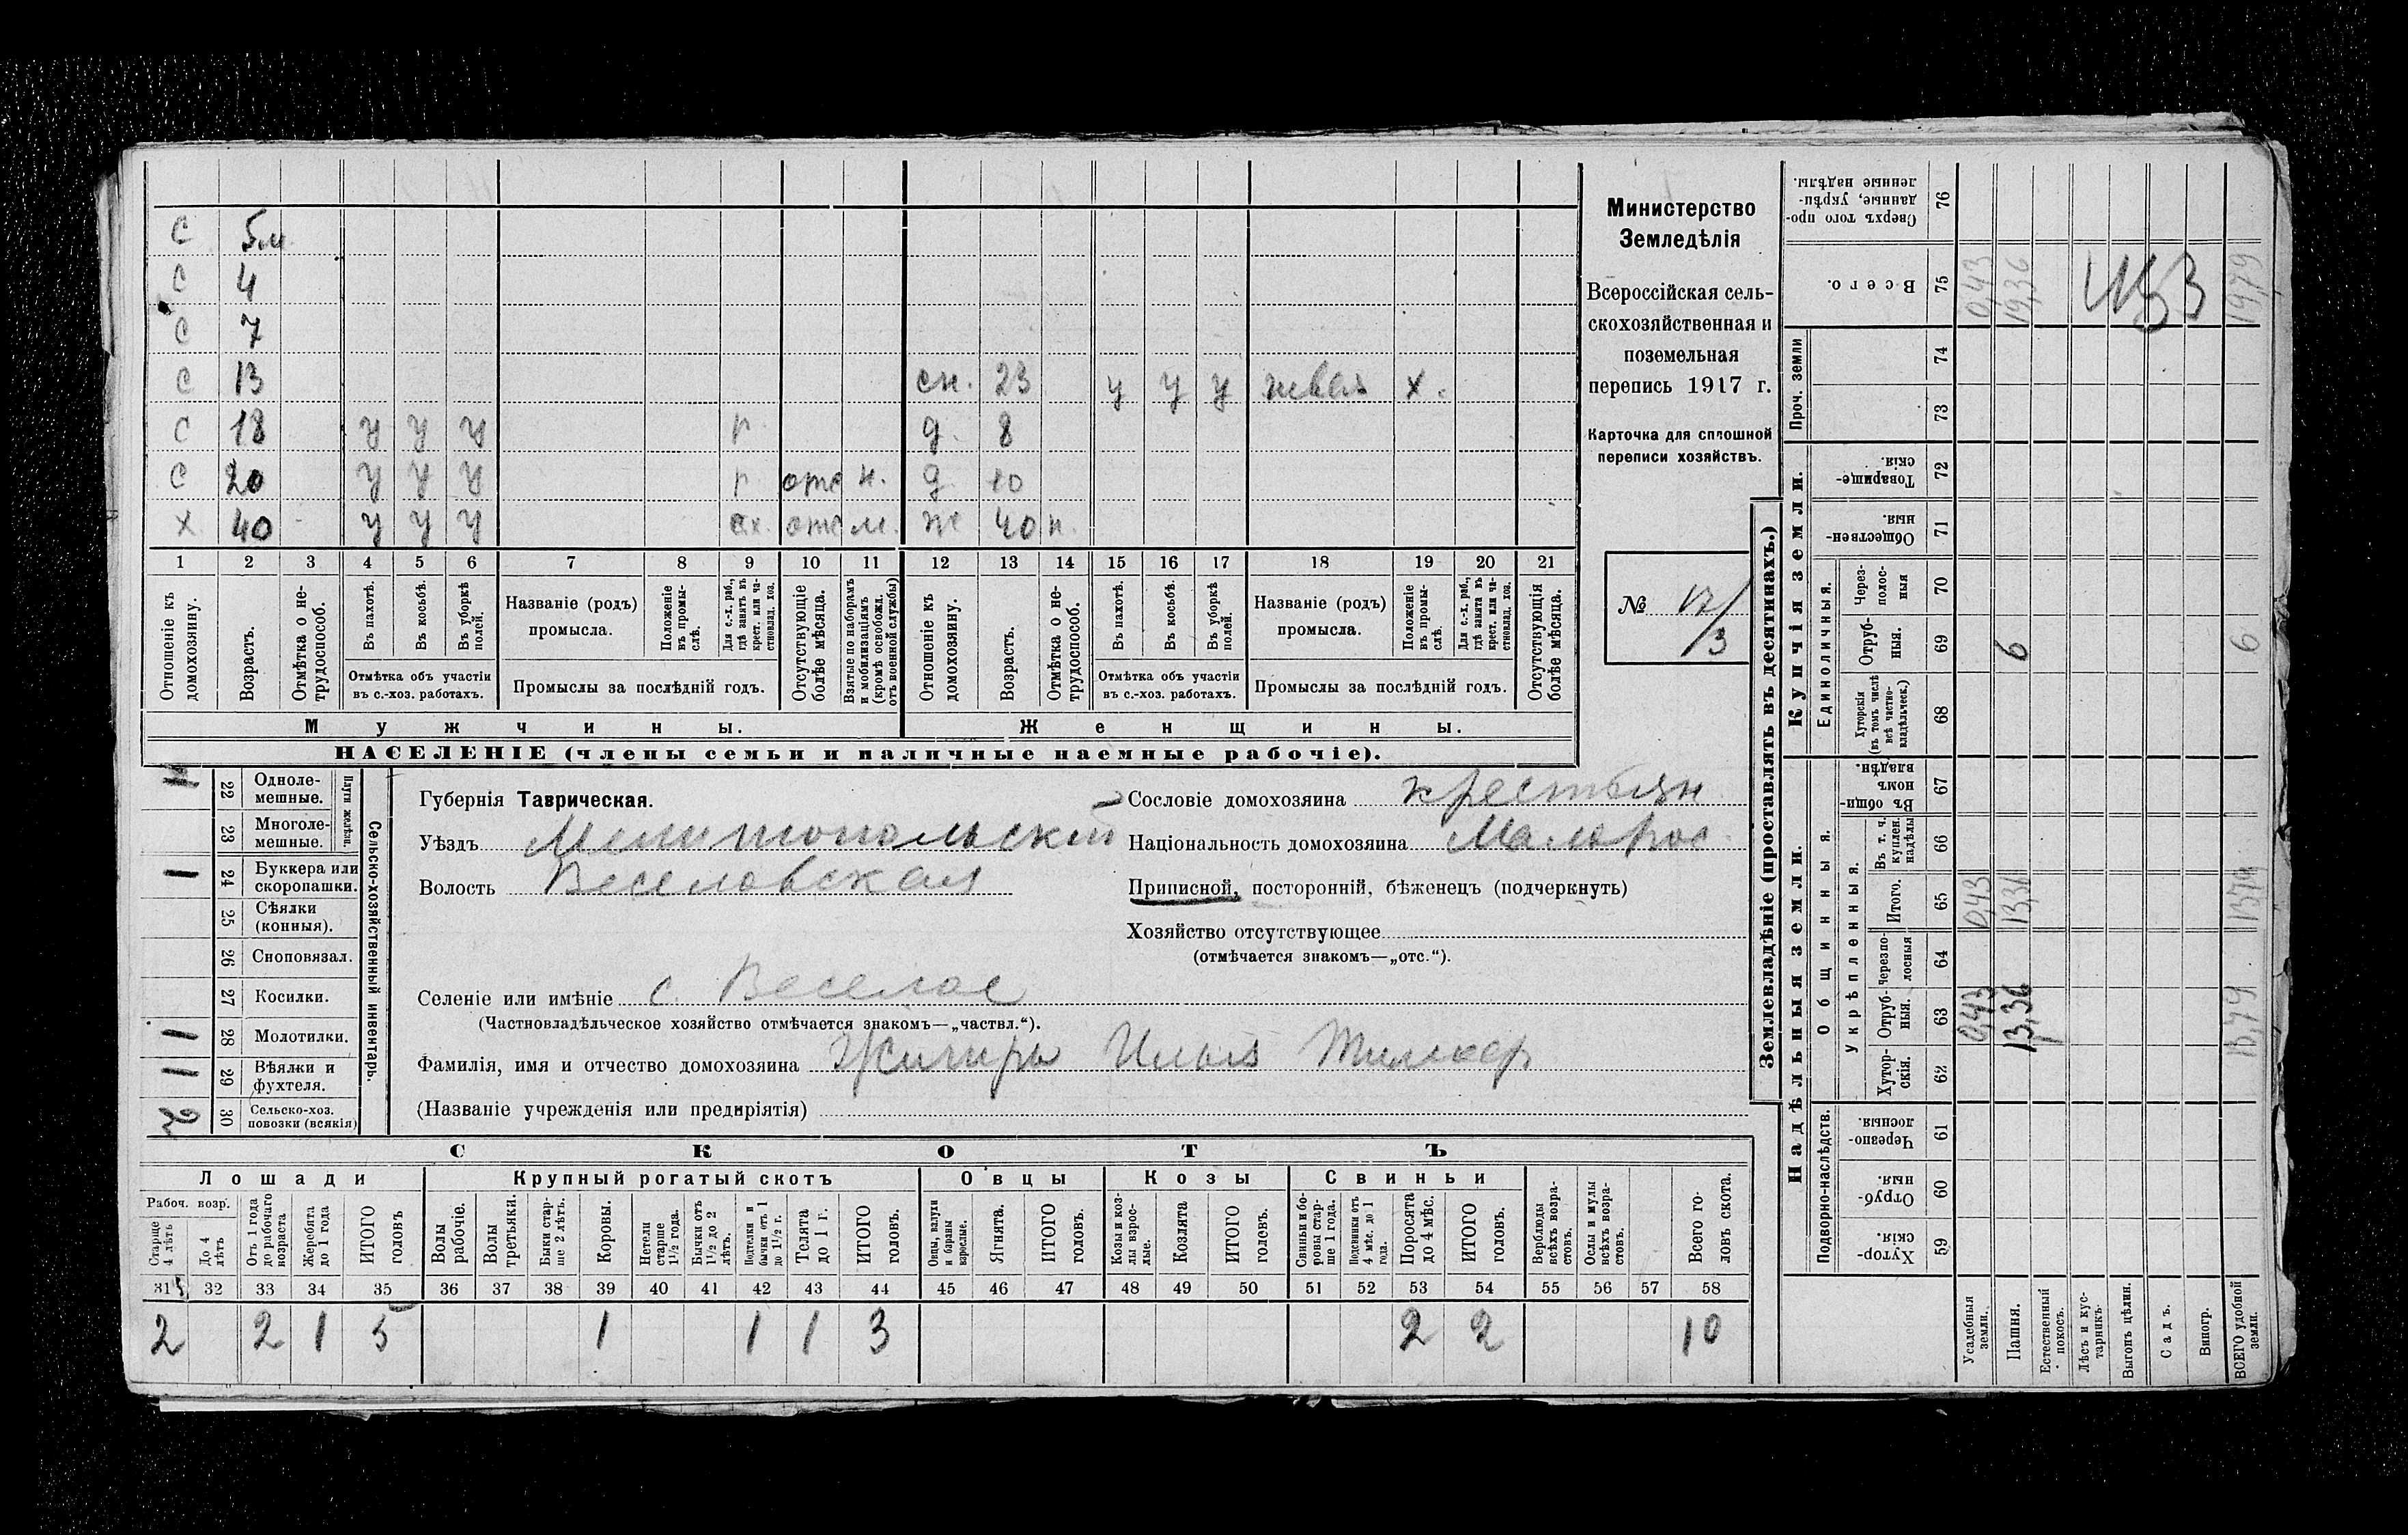 С 5м
С 4
С 7
С 13 сн. 23 у у у швея х.
С 18 у у у г. д. 8
С 20 у у у г. отс н. д 10
Х 40 у у у сх. отс м. ж 40 н.
1 2 3 4 5 6 7 8 9 10 11 12 13 14 15 16 17 18 19 20 21
Отношеніе къ домохозяину.
Возрастъ.
Отмѣтка о не-трудоспособ.
Въ пахотѣ.
Въ косьбѣ.
Въ уборкѣ полей.
Отмѣтка объ участіи въ с.-хоз. работахъ.
Названіе (родъ) промысла.
Положеніе въ промы-слѣ.
Для с.-х. раб., гдѣ занятъ въ крест. или ча-стновлад. хоз.
Промыслы за послѣдній годъ.
Отсутствующіе болѣе мѣсяца.
Взятые по наборамъ и мобилизаціямъ (кромѣ освобожд. отъ военной службы)
Отношеніе къ домохозяину.
Возрастъ.
Отмѣтка о не-трудоспособ.
Въ пахотѣ.
Въ косьбѣ.
Въ уборкѣ полей.
Отмѣтка объ участіи въ с.-хоз. работахъ.
Названіе (родъ) промысла.
Положеніе въ промы-слѣ.
Для с.-х. раб., гдѣ занята въ крест. или ча-стновлад. хоз.
Промыслы за послѣдній годъ.
Отсутствующія болѣе мѣсяца.
Мужчины. Женщины.
НАСЕЛЕНІЕ (члены семьи и наличные наемные рабочіе).
Министерство
Земледѣлія
Всероссійская сель-
скохозяйственная и
поземельная
перепись 1917 г.
Карточка для сплошной
переписи хозяйствъ.
№ 17/3
Сельско-хозяйственный инвентарь.
Плуги желѣзн.
1 22 Одноле-мешные.
23 Многоле-мешные.
1 24 Буккера или скоропашки.
25 Сѣялки (конныя).
26 Сноповязал.
27 Косилки.
1 28 Молотилки.
1 29 Вѣялки и фухтеля.
2 30 Сельско-хоз. повозки (всякія)
Губернія Таврическая.
Уѣздъ Мелитопольскій
Волость Веселовская
Селеніе или имѣніе с. Веселое
(Частновладѣльческое хозяйство отмѣчается знакомъ—„частвл.“).
Фамилія, имя и отчество домохозяина Жигирь Илья
(Названіе учрежденія или предпріятія)
Сословіе домохозяина крестьян
Національность домохозяина Малорос
Приписной, посторонній, бѣженецъ (подчеркнуть)
Хозяйство отсутствующее
(отмѣчается знакомъ—„отс.“).
СКОТЪ
Лошади Крупный рогатый скотъ Овцы Козы Свиньи
Рабоч. возр.
Старше 4 лѣтъ
До 4 лѣтъ
Отъ 1 года до рабочаго возраста
Жеребята до 1 года
ИТОГО головъ
Волы рабочіе.
Волы третьяки.
Быки стар-ше 2 лѣтъ.
Коровы.
Нетели старше 1½ года.
Бычки отъ 1½ до 2 лѣтъ.
Подтелки и бычки отъ 1 до 1½ г.
Телята до 1 г.
ИТОГО головъ.
Овцы, валухи и бараны взрослые.
Ягнята.
ИТОГО головъ.
Козы и коз-лы взрос-лые.
Козлята
ИТОГО головъ.
Свиньи и бо-ровы стар-ше 1 года.
Подсвинки отъ 4 мѣс. до 1 года.
Поросята до 4 мѣс.
ИТОГО головъ.
Верблюды всѣхъ возра-стовъ.
Ослы и мулы всѣхъ возра-стовъ.
Всего го-ловъ скота.
31 32 33 34 35 36 37 38 39 40 41 42 43 44 45 46 47 48 49 50 51 52 53 54 55 56 57 58
2 2 1 5 1 1 1 3 2 2 10
Землевладѣніе (проставлять въ десятинахъ.)
Надѣльныя земли. Купчія земли.
Подворно-наслѣдств.
Общинныя.
Укрѣпленныя.
Единоличныя.
Проч. земли
Сверхъ того про-данные, укрѣп-ленные надѣлы. 76
Всего. 75 0,43 19,36 19,79
74
73
Товарище-скія. 72
Обществен-ныя. 71
Через-полос-ныя 70
Отруб-ныя. 69 6 6
Хуторскія (въ томъ числѣ всѣ частно-владѣльческ.) 68
Въ общин-номъ владѣн. 67
Въ т. ч. куплен. надѣлы 66
Итого. 65 0,43 13,36 13,79
Черезпо-лосныя 64
Отруб-ныя. 63 0,43 13,36 13,79
Хутор-скія. 62
Черезпо-лосныя 61
Отруб-ныя 60
Хутор-скія. 59
Усадебныя земли.
Пашня.
Естественный покосъ.
Лѣсъ и кус-тарникъ.
Выгонъ цѣлин.
Садъ.
Виногр.
ВСЕГО удобной земли.